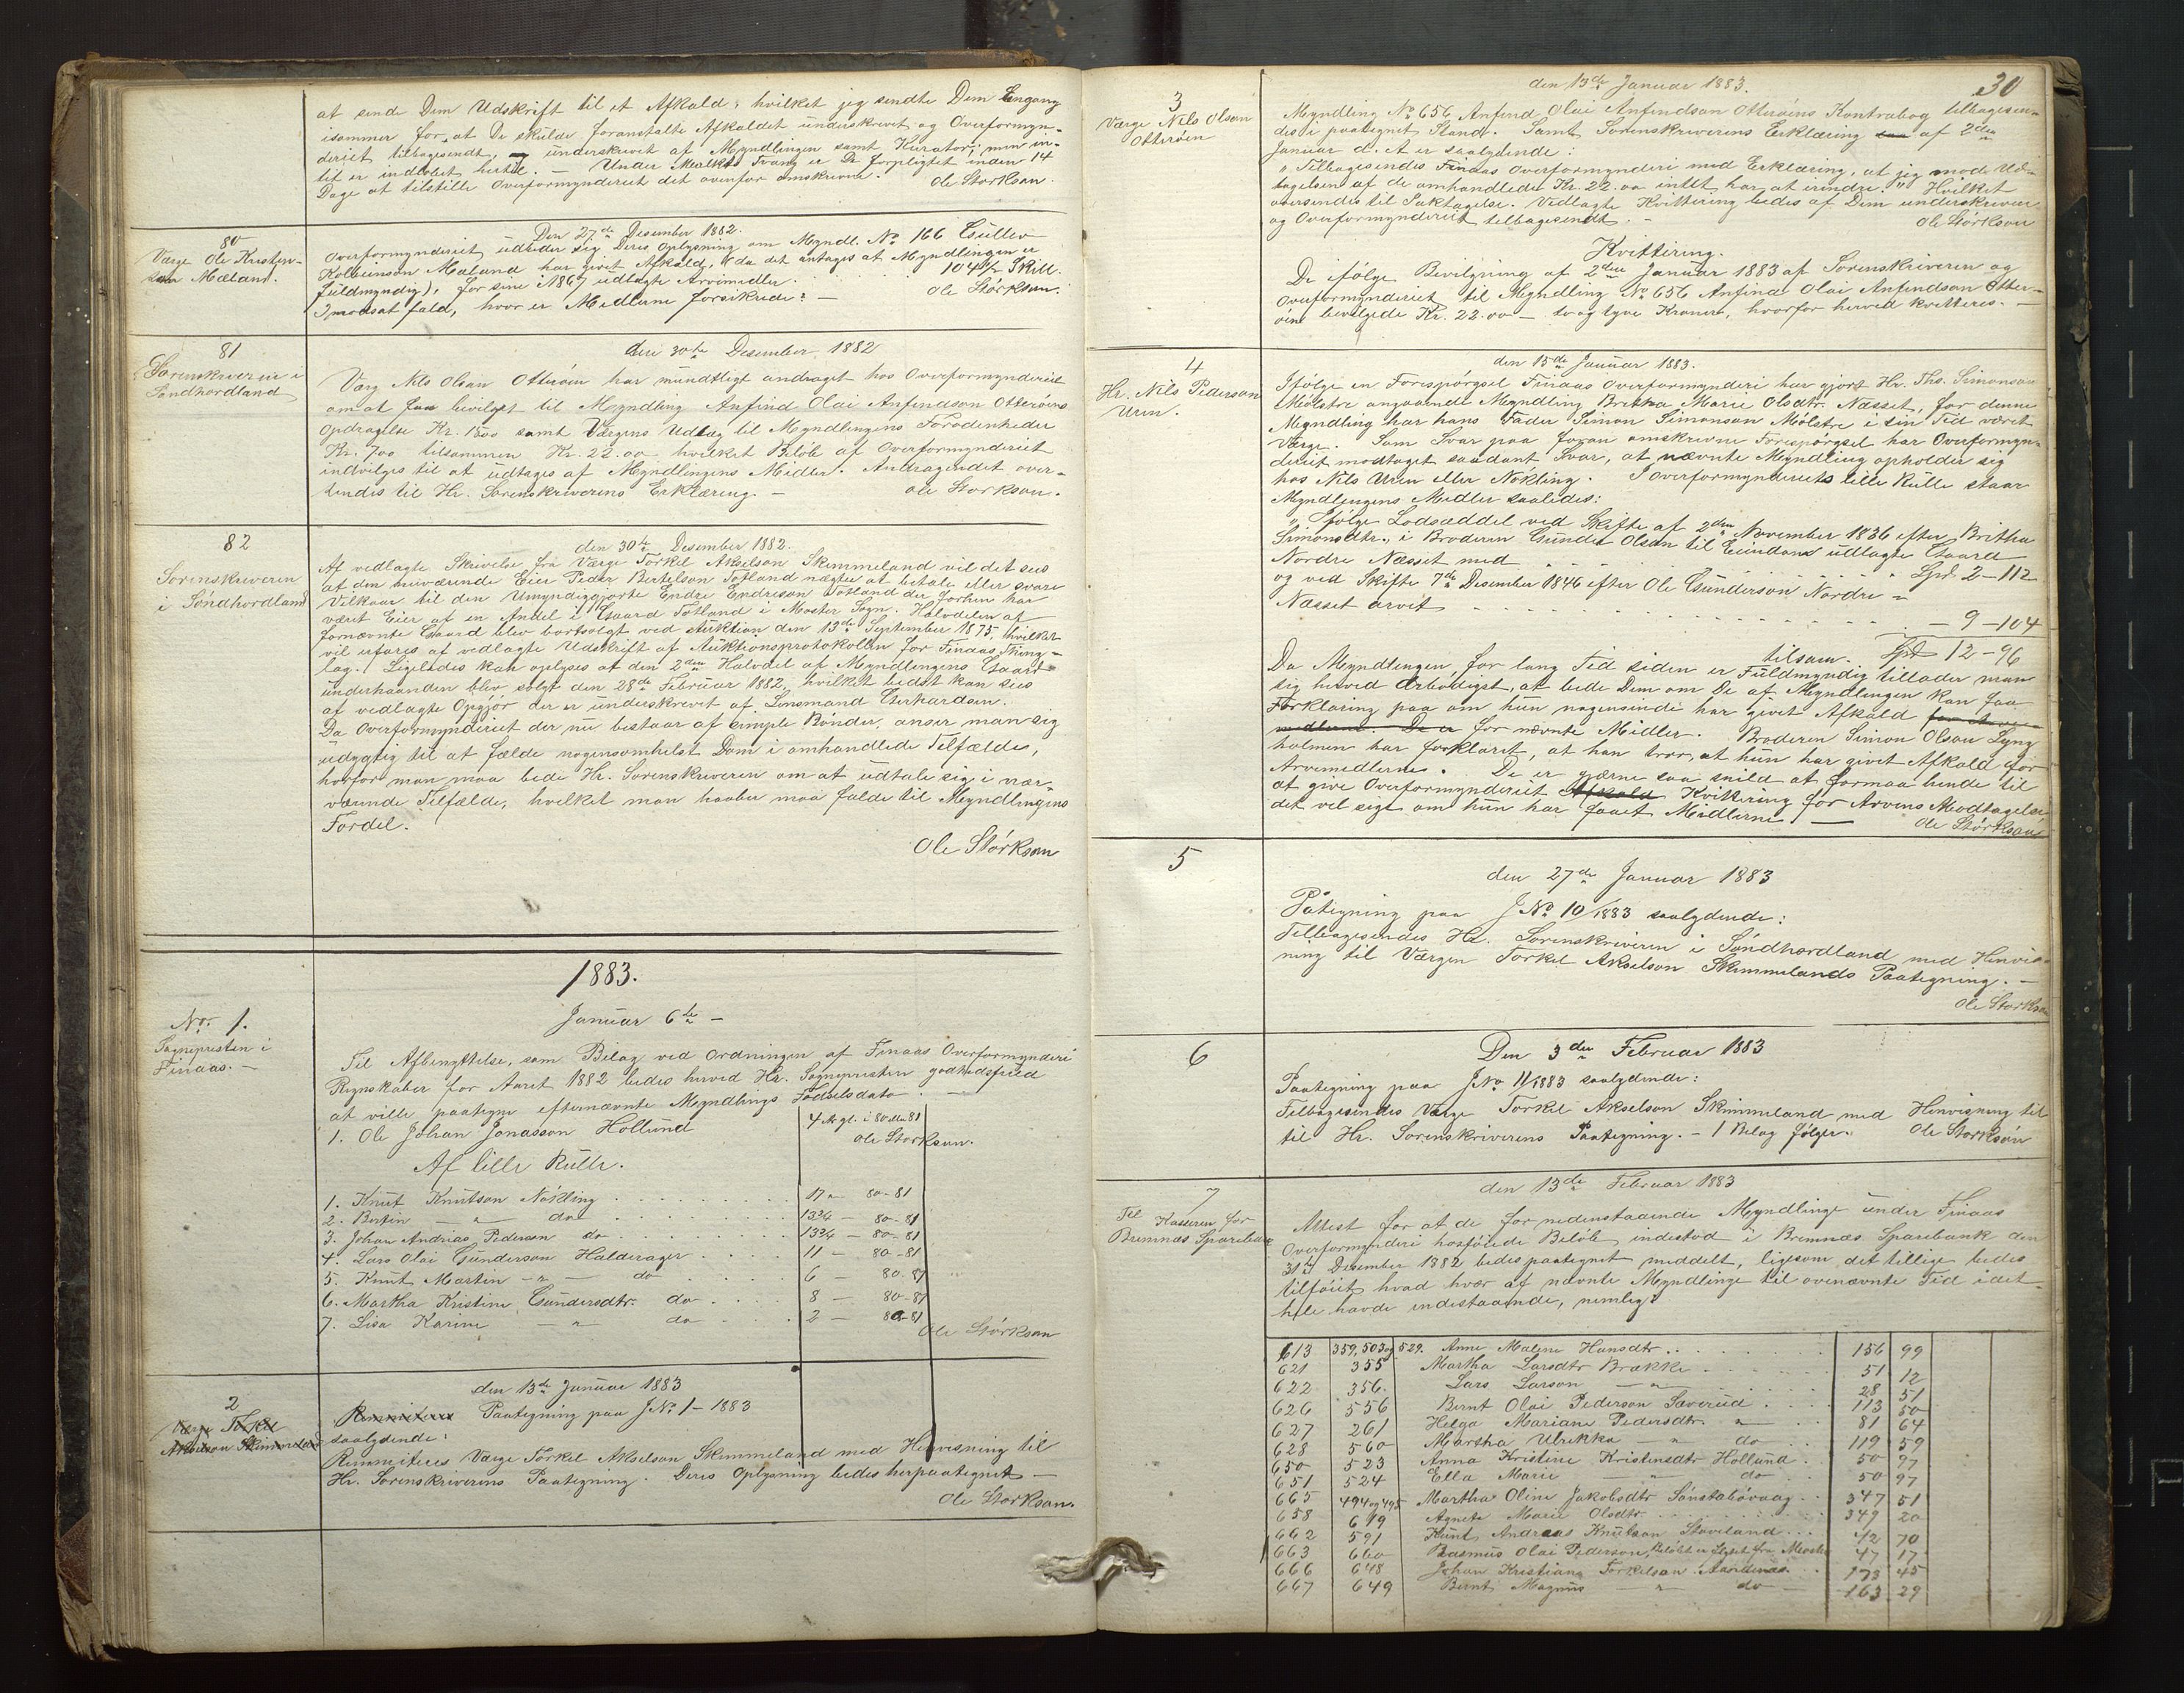 at sende Dem Udskrift til et Afkald; hvilket jeg sendte Dem Engang
isommer for, at De skulde foranstalte Afkaldet underskrevet og Overformyn-
deriet tilbagesendt, underskrevet af Myndlingen samt Kurator; men in-
tet er indløbet hertil. — Under Mulkts Tvang er De forpligtet inden 14
Dage at tilstille Overformynderiet det ovenfor omskrevne.
Ole Størksen.
80
Værge Ole Kristen-
sen Mæland.
Den 27de Desember 1882.
Overformynderiet udbeder sig Deres Oplysning om Myndl. No 166 Gullev
Kolbeinson Mæland har givet Afkald, (da det antages at Myndlingen er
fuldmyndig), for sine i 1867 udlagte Arvemidler. 104 1/2 Skill.
I modsat fald, hvor er Midlerne forsikrede? —
Ole Størksen.
81
Sorenskriveren i
Søndhordland
den 30te Desember 1882
Værg Nils Olsen Otterøen har mundtligt andraget hos Overformynderiet
om at faa bevilget til Myndling Anfind Olai Anfindson Otterøens
Opdragelse Kr. 1500 samt Værgens Udlæg til Myndlingens Fornødenheder
Kr. 700 tilsammen Kr. 22.00 hvilket Beløb af Overformynderiet
indvilges til at udtages af Myndlingens Midler. Andragendet over-
sendes til Hr. Sorenskriverens Erklæring. —
Ole Størksen.
82
Sorenskriveren
i Søndhordland
den 30te Desember 1882.
Af vedlagte Skrivelse fra Værge Torkel Akselson Skimmeland vil det sees
at den nuværende Eier Peder Bertelson Totland nægter at betale eller svare
Vilkaar til den Umyndiggjorte Endre Endreson Totland der forhen har
været Eier af en Andel i Gaard Totland i Moster Sogn. Halvdelen af
fornævnte Gaard blev bortsolgt ved Auktion den 13de September 1875, hvilket
vil erfares af vedlagte Udskrift af Auktionsprotokollen for Finaas Thing-
lag. Ligeledes kan oplyses at den 2den Halvdel af Myndlingens Gaard
underhaanden blev solgt den 28de Februar 1882, hvilket bedst kan sees
af vedlagte Opgjør der er underskrevet af Lensmand Gerhardsen.
Da Overformynderiet der nu bestaar af simple Bønder, anser man sig
udygtig til at fælde nogensomhelst Dom i omhandlede Tilfælde,
hvorfor man maa bede Hr. Sorenskriveren om at udtale sig i nær-
værende Tilfælde, hvilket man haaber maa falde til Myndlingens
Fordel.
Ole Størksen
1883.
No. 1.
Sognepresten i
Finaas. —
Januar 6te —
Til Afbenyttelse, som Bilag ved Ordningen af Finaas Overformynderi
Regnskaber for Aaret 1882 bedes herved Hr. Sognepresten godhedsfuld
at ville paategne efternævnte Myndlings Fødselsdato. —
1. Ole Johan Jonasson Hollund 4 Ar gl. i 80 till 81
Ole Størksen.
Af lille Rulle.
1. Knut Knutson Nøkling 17 " 80-81
2. Bertin — " — do 13 3/4 — 80-81
3. Johan Andrias Pederson do 13 3/4 — 80-81
4. Lars Olai Gunderson Halderager 11 — 80-81
5. Knut Martin — " — do 6 — 80-81
6. Martha Kristine Gundersdtr. do 8 — 80-81
7. Lisa Karine — " — do 2 — 80-81
Ole Størksen
2
Værge Torkel
Akselson Skimmeland
den 13de Januar 1883
Remmiteres Paategning paa J No. 1 - 1883
saalydende:
Remmiteres Værge Torkel Akselson Skimmeland med Henvisning til
Hr. Sorenskriverens Paategning. Deres Oplysning bedes herpaategnet —
Ole Størksen.
30
3
Værge Nils Olson
Otterøen
den 13de Januar 1883.
Myndling No 656 Anfind Olai Anfindson Otterøens Kontrabog tilbagesen-
des i paategnet Stand. Samt Sorenskriverens Erklæring af 2den
Januar d. A er saalydende:
"Tilbagesendes Finaas Overformynderi med Erklæring, at jeg mod Ud-
tagelsen af de omhandlede Kr. 22.00 intet har at erindre." Hvilket
oversendes til Iaktagelse. Vedlagte Kvittering bedes af Dem underskreven
og Overformynderiet tilbagesendt. —
Ole Størksen
Kvittering.
De ifølge Bevilgning af 2den Januar 1883 af Sorenskriveren og
Overformynderiet til Myndling No 656 Anfind Olai Anfindson Otter-
øens bevilgede Kr. 22.00 — to og tyve Kroner, hvorfor herved kvitteres. —
4
Hr. Nils Pederson
Uren.
den 15de Januar 1883.
Ifølge en Forespørgsel Finaas Overformynderi har gjort Hr. Ths. Simonson
Mølstre angaaende Myndling Britha Marie Olsdtr. Næsset, for denne
Myndling har hans Fader Simon Simonson Mølstre i sin Tid været
Værge. Som Svar paa foran omskrevne Forespørgsel har Overformyn-
deriet modtaget saadant Svar, at nævnte Myndling opholder sig
hos Nils Uren eller Nøkling. I Overformynderiets lille Rulle staar
Myndlingens Midler saaledes:
"Ifølge Lodsæddel ved Skifte af 2den November 1836 efter Britha
Simonsdtr., i Broderen Gunder Olson til Eiendom udlagte Gaard
Nordre Næsset med Spd. 2 — 112
og ved Skifte 7de Desember 1846 efter Ole Gunderson Nordre =
Næsset arvet — 9 — 104
tilsam. Spd 12 — 96
Da Myndlingen for lang Tid siden er Fuldmyndig tillader man
sig herved Ærbødigst, at bede Dem om De af Myndlingen kan faa
Forklaring paa om hun nogensinde har givet Afkald for Arve-
midlerne. De er for nævnte Midler. Broderen Simon Olson Lyng
holmen har forklaret, at han tror, at hun har givet Afkald for
Arvemidlerne. De er gjærne saa snild at formaa hende til
at give Overformynderiet Afkald Kvittering for Arvens Modtagelse
det vil sige om hun har faaet Midlerne. —
Ole Størksen
5
den 27de Januar 1883
Påtegning paa J No 10/1883 saalydende:
Tilbagesendes Hr. Sorenskriveren i Søndhordland med Henvis-
ning til Værgen Torkel Akselson Skimmelands Paategning. —
Ole Størksen
6
Den 3den Februar 1883
Paategning paa J No 11/1883 saalydende:
Tilbagesendes Værge Torkel Akselson Skimmeland med Henvisning til
til Hr. Sorenskriverens Paategning. — 1 Bilag følger.
Ole Størksen
7
Til Kasseren for
Bremnæs Sparebank
den 13de Februar 1883
Attest for at de for nedenstaaende Myndlinge under Finaas
Overformynderi hosføiede Beløb indestod i Bremnæs Sparebank den
31te Desember 1882 bedes paategnet meddelt, ligesom det tillige bedes
tilføiet hvad hver af nævnte Myndlinge til ovenævnte Tid i det
hele havde indestaaende, nemlig:
613 359, 503 og 529. Anne Malene Hansdtr. 156 99
621 355 Martha Larsdtr Brække 51 12
622 356. Lars Larson — " — 28 51
626 556 Bernt Olai Pederson Sæverud 113 50
627 261 Helga Mariane Pedersdtr. " 81 64
628 560 Martha Ulrikka — " — do 119 59
650 523 Anna Kristine Kristensdtr Hollund 50 97
651 524 Ella Marie " do 50 97
665 494 og 495 Martha Oline Jakobsdtr Sønstabøvaag 347 51
658 619 Agnete Marie Olsdtr. 349 20
662 591 Knut Andreas Knutson Stoveland 12 70
663 660 Rasmus Olai Pederson, Beløbet er flyttet fra Moster 47 17
666 648 Johan Kristian Torkelsen Aardenæs 173 45
667 649 Bernt Magnus — " — do 163 29